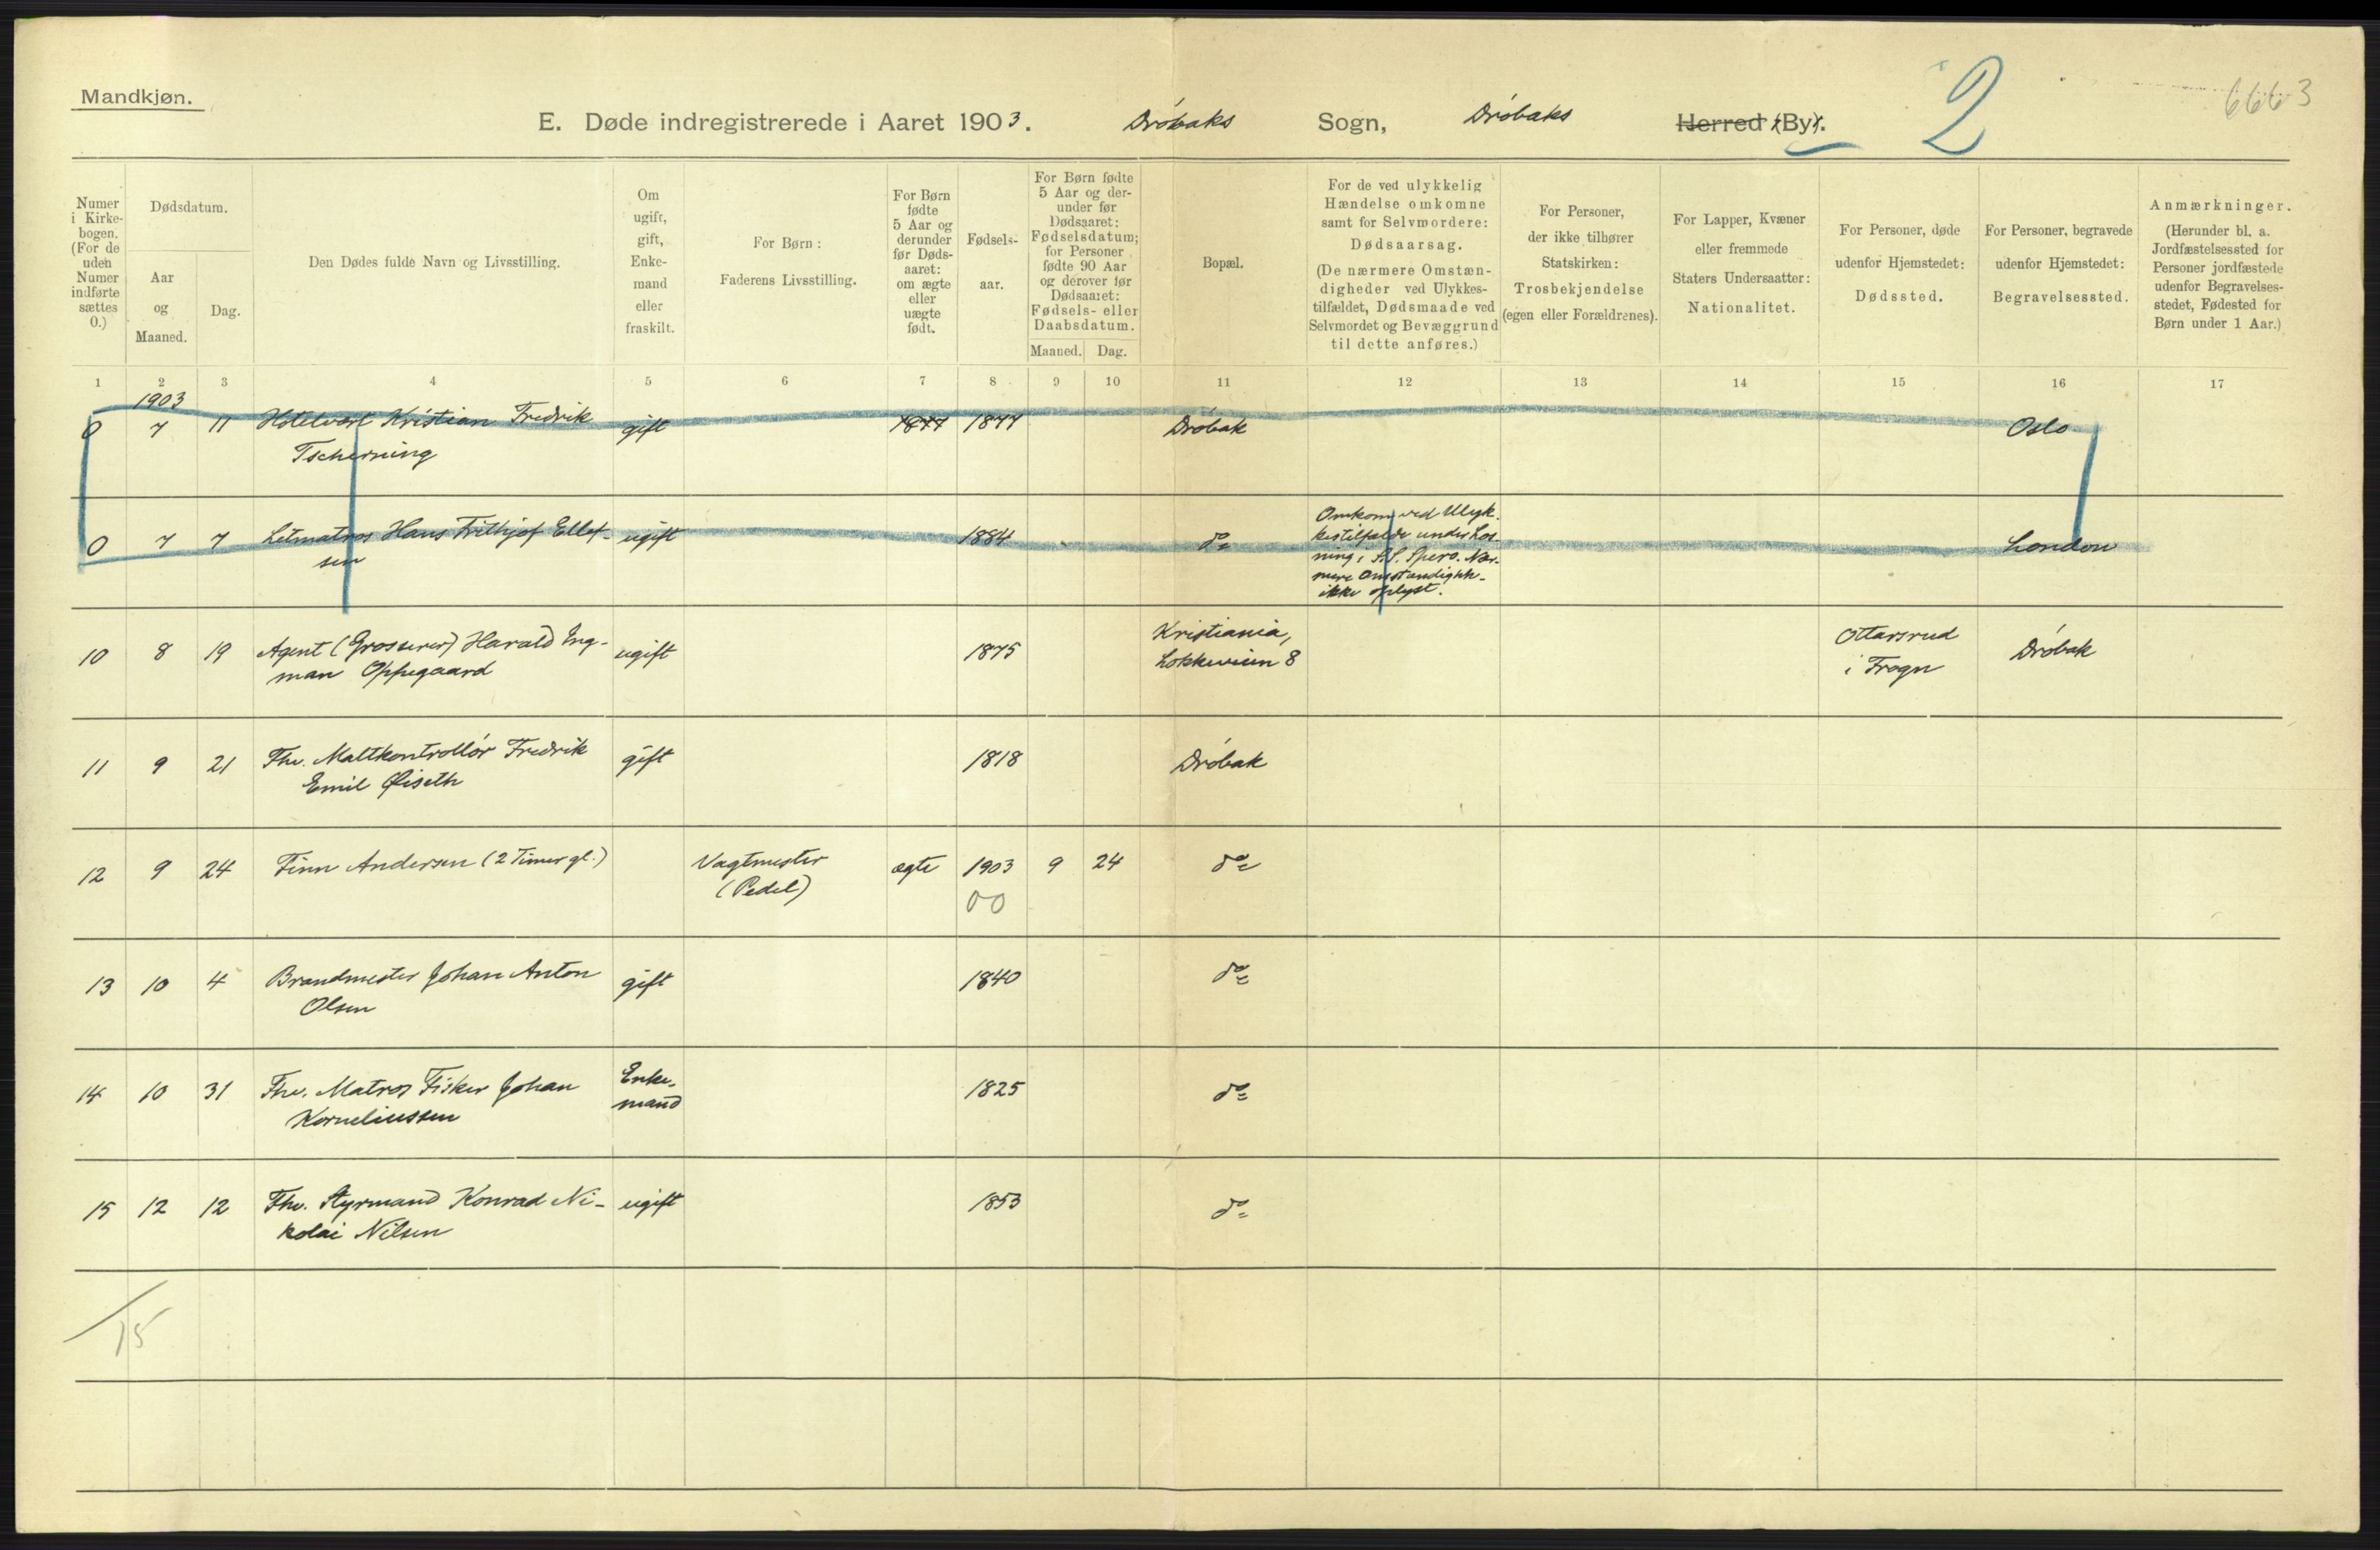 Mandkjøn.
E. Døde indregistrerede i Aaret 1903. Drøbaks Sogn, Drøbaks Herred (By).
2
6663
Numer i Kirke-bogen. (For de uden Numer indførte sættes 0.)
Dødsdatum.
Aar og Maaned.
Dag.
Den Dødes fulde Navn og Livsstilling.
Om ugift, gift, Enke-mand eller fraskilt.
For Børn:
Faderens Livsstilling.
For Børn fødte 5 Aar og derunder før Døds-aaret: om ægte eller uægte født.
Fødsels-aar.
For Børn fødte 5 Aar og der-under før Dødsaaret: Fødselsdatum; for Personer fødte 90 Aar og derover før Dødsaaret: Fødsels- eller Daabsdatum.
Maaned. Dag.
Bopæl.
For de ved ulykkelig Hændelse omkomne samt for Selvmordere: Dødsaarsag.
(De nærmere Omstæn-digheder ved Ulykkes-tilfældet, Dødsmaade ved Selvmordet og Bevæggrund til dette anføres.)
For Personer, der ikke tilhører Statskirken: Trosbekjendelse (egen eller Forældrenes).
For Lapper, Kvæner eller fremmede Staters Undersaatter: Nationalitet.
For Personer, døde udenfor Hjemstedet: Dødssted.
For Personer, begravede udenfor Hjemstedet: Begravelsessted.
Anmærkninger.
(Herunder bl. a. Jordfæstelsessted for Personer jordfæstede udenfor Begravelses-stedet, Fødested for Børn under 1 Aar.)
1 2 3 4 5 6 7 8 9 10 11 12 13 14 15 16 17
1903
0 7 11 Hotelvært Kristian Fredrik gift 1877 1877 Drøbak Oslo
Tscherning
0 7 7 Letmatros Hans Frithjof Ellef- ugift 1884 do London
sen
Omkom ved Ulyk-
kestilfælde under Los-
ning i S.S. Spero. Nær-
mere Omstændighh-
ikke oplyst.
10 8 19 Agent (Grosserer) Harald Ing- ugift 1875 Kristiania, Ottarsrud Drøbak
man Oppegaard Løkkeveien 8 i Frogn
11 9 21 Fhv. Maltkontrollør Fredrik gift 1818 Drøbak
Emil Øiseth
12 9 24 Finn Andersen (2 Timer gl.) Vagtmester ægte 1903 9 24 do
(Pedel) 00
13 10 4 Brandmester Johan Anton gift 1840 do
Olsen
14 10 31 Fhv. Matros Fisker Johan Enke- 1825 do
Korneliussen mand
15 12 12 Fhv. Styrmand Konrad Ni- ugift 1853 do
kolai Nilsen
15